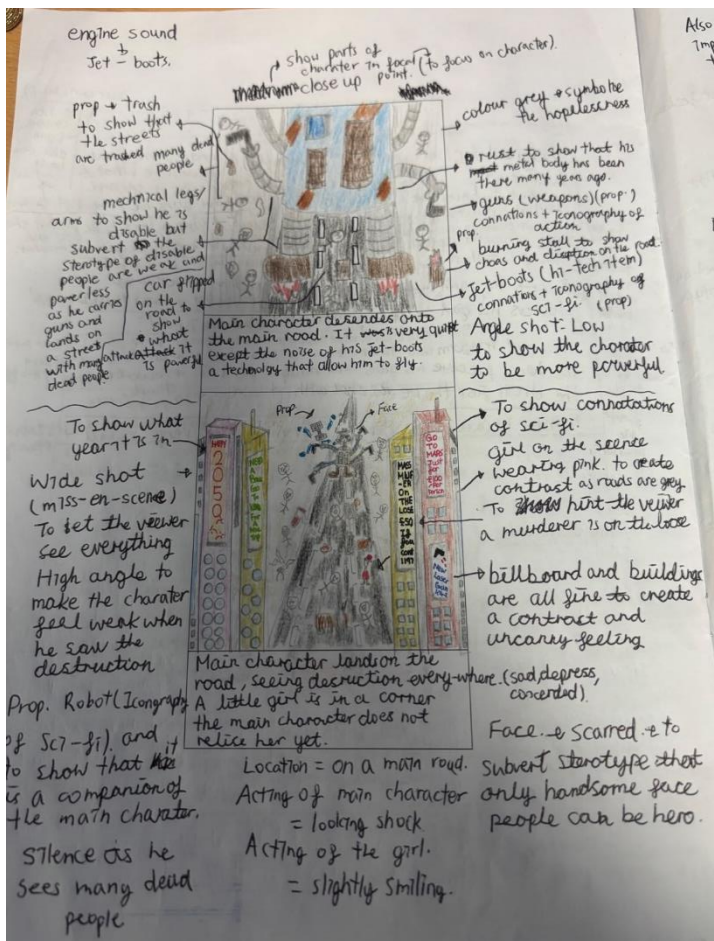 engine sound
Jet-boots.
Also
imp
show parts of
charater in focal (to focus on character).
close up point.
prop → trash
to show that
the streets
are trashed many dead
people
mechnical legs/
arms to show he is
disable but
subvert the
sterotype of disable
people are weak and
powerless
as he carries
guns and
lands on
a street
with many
dead people.
car flipped
on the
road to
show
whoat
attack it
is powerful
colour grey → symbolise
the hopelessness
rust to show that his
metal body has been
there many years ago.
guns (weapons) (prop.)
connations + iconography of
action
prop.
burning stall to show
chaos and disruption on the road.
Jet-boots (hi-tech item)
connations + iconography of
sci-fi. (prop)
Angle shot: Low
to show the charater
to be more powerful.
Main character desends onto
the main road. It is very quiet
except the noise of his jet-boots
a technology that allow him to fly.
To show what
year it is in
Wide shot
(miss-en-scene)
To let the viewer
see everything
High angle to
make the charater
feel weak when
he saw the
destruction
Prop. Robot (Iconography
of Sci-fi) and
to show that it
is a companion of
the main charater.
Silence as he
sees many dead
people
Prop
Face
HAPPY
2050
MASS
MUR-
ER
ON
THE
LOSE
£50
GO
TO
MARS
JUST
FOR
£100
New
Laser
To show connatations
of sci-fi.
girl on the scence
wearing pink. to create
contrast as roads are grey.
To hint the veiwer
a murderer is on the loose
billboard and buildings
are all fine to create
a contract and
uncanny feeling
Main character lands on the
road, seeing desruction every-where. (sad, depress,
concerded).
A little girl is in a corner
the main character does not
relice her yet.
Location = on a main road.
Acting of main character
= looking shock
Acting of the girl.
= slightly smiling.
Face → scarred → to
subvert sterotype that
only handsome face
people can be hero.